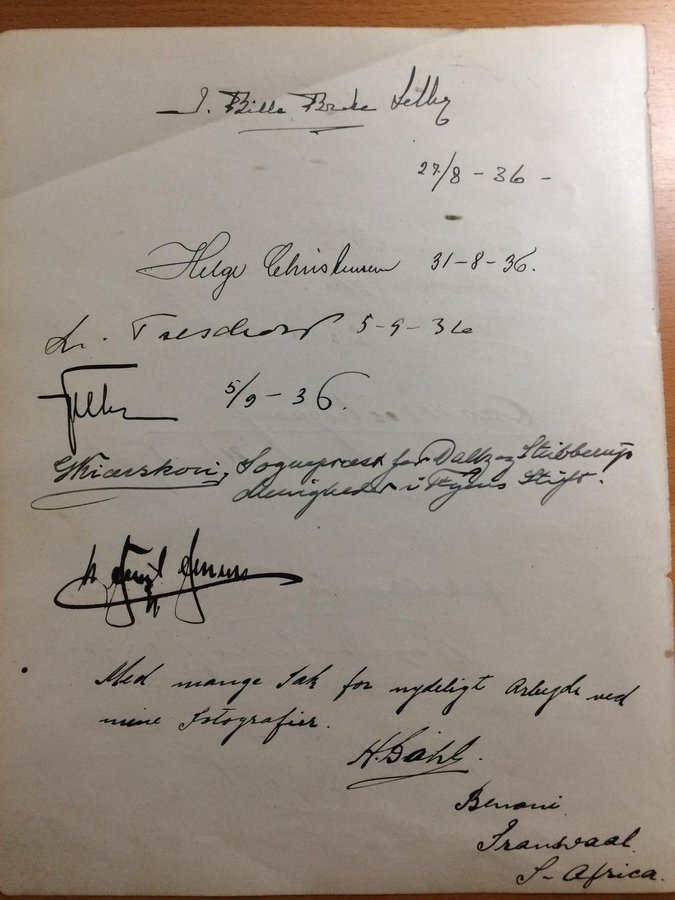 J. Bille Brahe Selby
27/8 - 36 -
Helge Christensen 31-8-36.
Fr. Treschow 5-9-36
5/9 - 36.
Sognepræst for Dalby og Stubberup
Menigheder i Fyens Stift.
Jensen
Med mange Tak for nydeligt Arbejde ved
mine Fotografier.
H. Dahl.
Benoni
Transvaal
S- Africa.